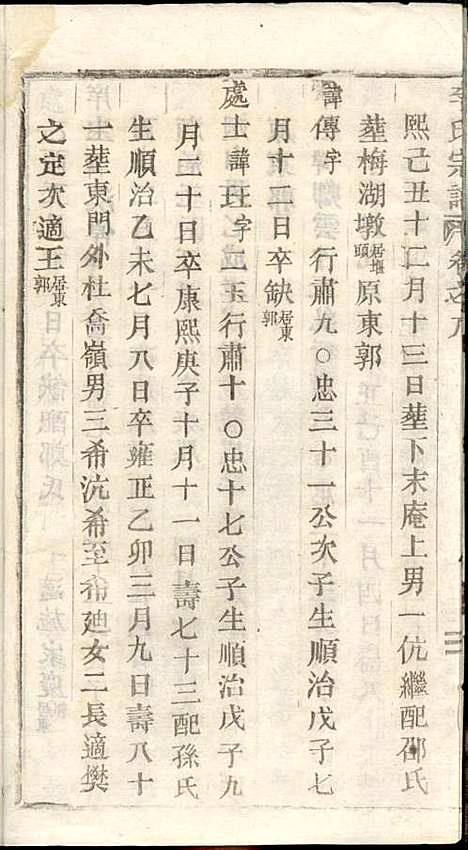 李氏宗譜 卷之八
熙己丑十二月十三日塟下末庵上男一伉繼配邵氏
塟梅湖墩居堰頭原東郭
諱傳字 行肅九○忠三十一公次子生順治戊子七
月十二日卒缺居東郭
處士諱玨字二玉行肅十○忠十七公子生順治戊子九
月二十日卒康熙庚子十月十一日壽七十三配孫氏
生順治乙未七月八日卒雍正乙卯三月九日壽八十
一塟東門外杜喬嶺男三希沆希至希廸女二長適樊
之定次適王居東郭